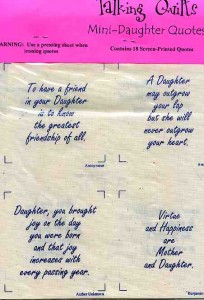 Talking Quilts
Mini-Daughter Quotes
WARNING: Use a pressing sheet when
ironing quotes
Contains 18 Screen-Printed Quotes
To have a friend
in your Daughter
is to know
the greatest
friendship of all.
Anonymous
A Daughter
may outgrow
your lap
but she will
never outgrow
your heart.
Daughter, you brought
joy on the day
you were born
and that joy
increases with
every passing year.
Author Unknown
Virtue
and Happiness
are
Mother
and Daughter.